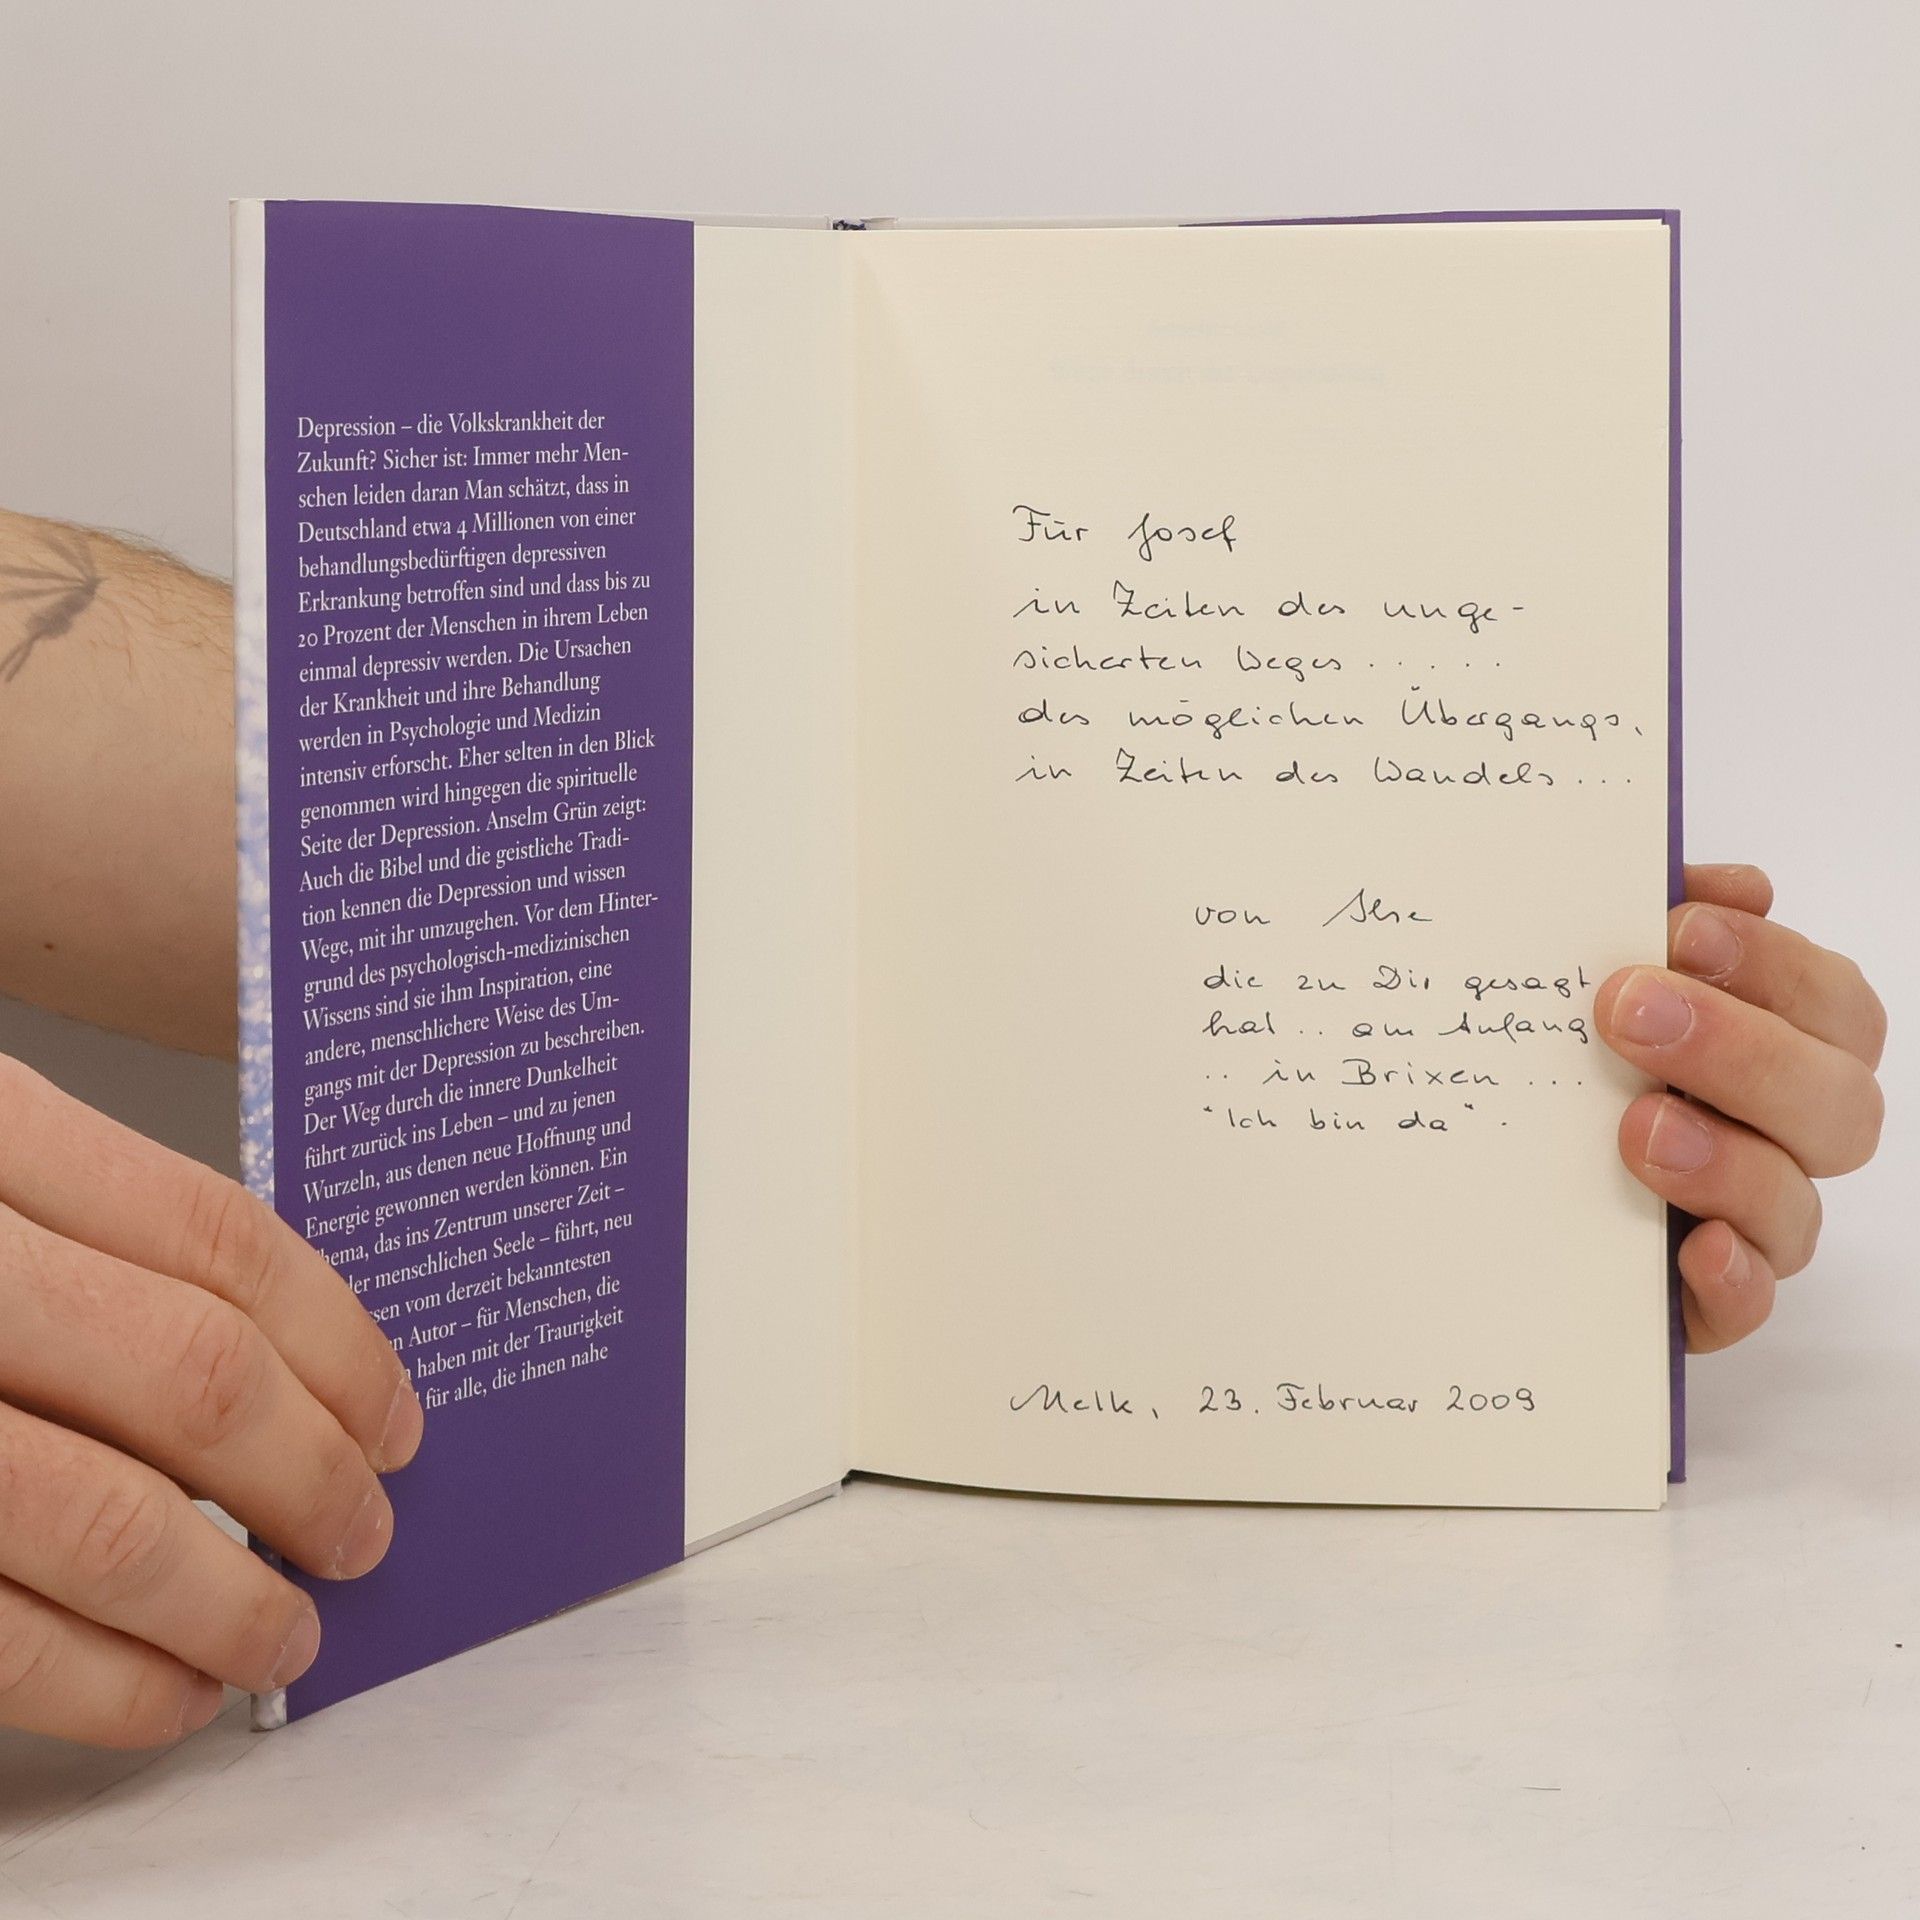 Depression – die Volkskrankheit der
Zukunft? Sicher ist: Immer mehr Men-
schen leiden daran Man schätzt, dass in
Deutschland etwa 4 Millionen von einer
behandlungsbedürftigen depressiven
Erkrankung betroffen sind und dass bis zu
20 Prozent der Menschen in ihrem Leben
einmal depressiv werden. Die Ursachen
der Krankheit und ihre Behandlung
werden in Psychologie und Medizin
intensiv erforscht. Eher selten in den Blick
genommen wird hingegen die spirituelle
Seite der Depression. Anselm Grün zeigt:
Auch die Bibel und die geistliche Tradi-
tion kennen die Depression und wissen
Wege, mit ihr umzugehen. Vor dem Hinter-
grund des psychologisch-medizinischen
Wissens sind sie ihm Inspiration, eine
andere, menschlichere Weise des Um-
gangs mit der Depression zu beschreiben.
Der Weg durch die innere Dunkelheit
führt zurück ins Leben – und zu jenen
Wurzeln, aus denen neue Hoffnung und
Energie gewonnen werden können. Ein
hema, das ins Zentrum unserer Zeit –
der menschlichen Seele – führt, neu
ssen vom derzeit bekanntesten
n Autor – für Menschen, die
haben mit der Traurigkeit
für alle, die ihnen nahe
Für Josef
in Zeiten des unge-
sicherten Weges . . . . .
des möglichen Übergangs,
in Zeiten des Wandels . . .
von
die zu Dir gesagt
hat .. am Anfang
.. in Brixen ...
"Ich bin da" .
Melk, 23. Februar 2009